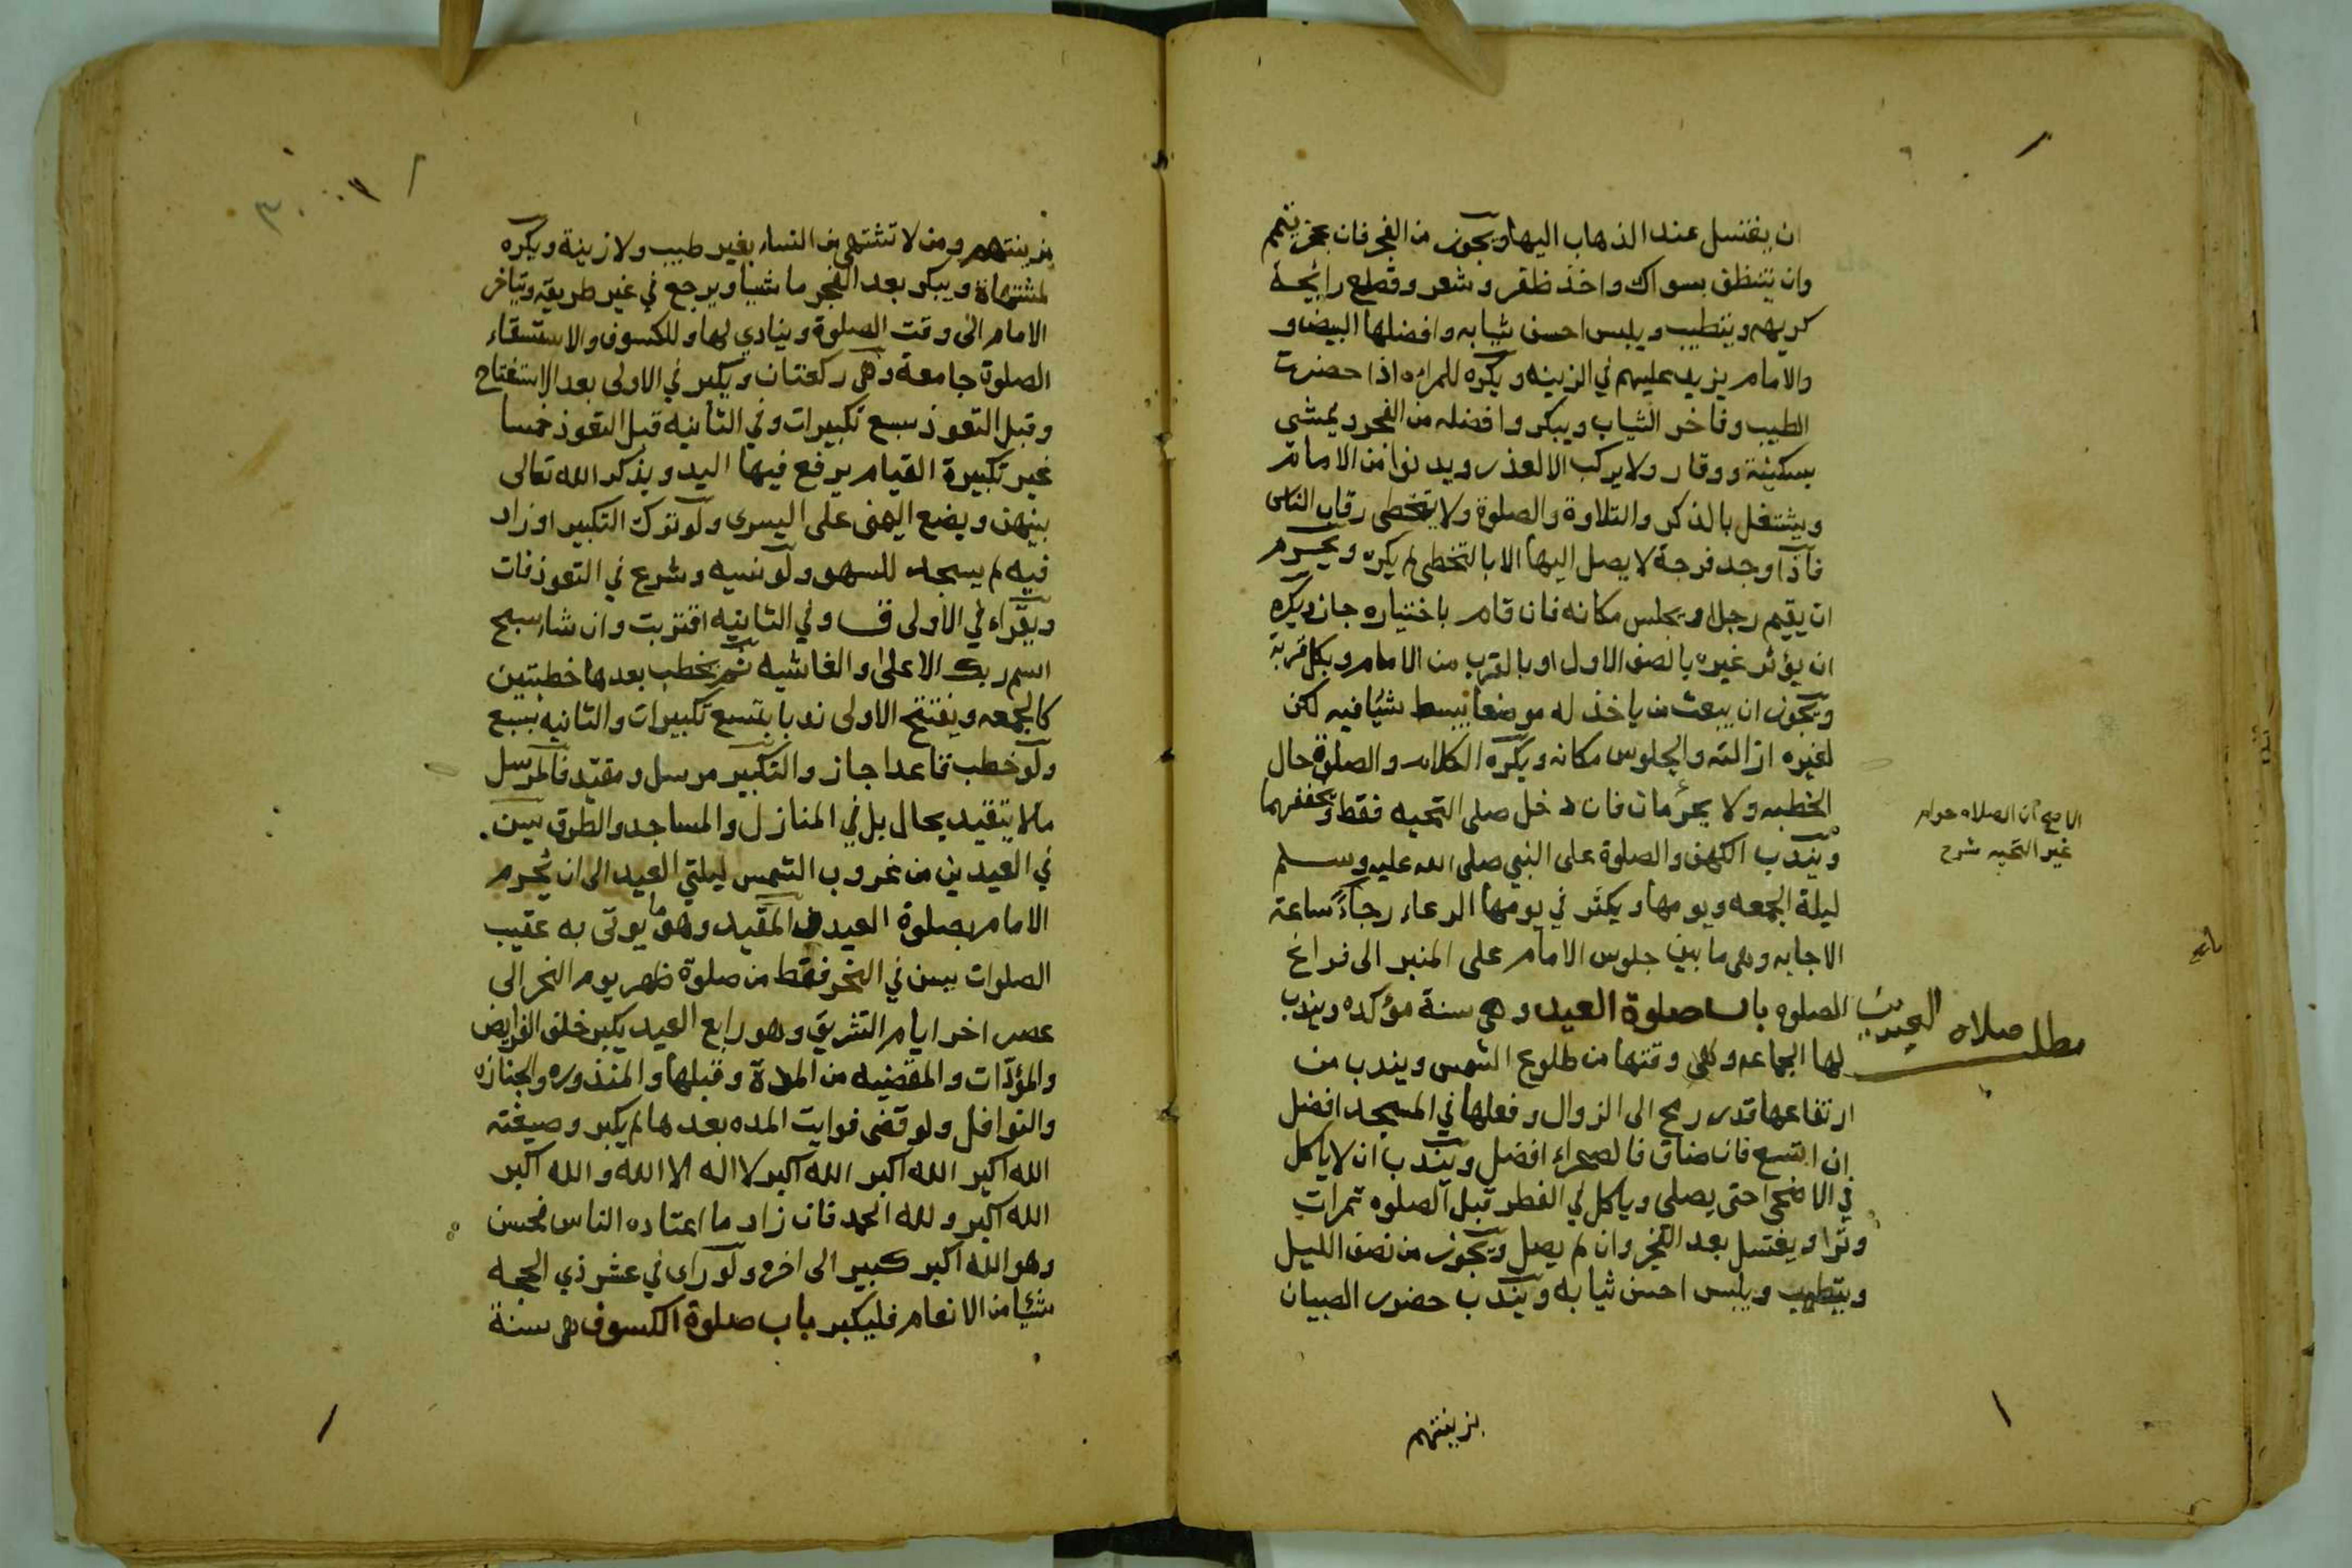 ان يغتسل عند الذهاب اليها ويجوز من الفجر فان عجز تيمم
وان يتنظف بسواك واخذ ظفر وشعر وقطع رايحة
كريهه ويتطيب ويلبس احسن ثيابه وافضلها البيض و
والامام يزيد عليهم في الزينه ويكره للمراه اذا حضرت
الطيب وفاخر الثياب ويبكر وافضله من الفجر ويمشي
بسكينة ووقار ولا يركب الا لعذر ويدنوا من الامام
ويشتغل بالذكر والتلاوة والصلوة ولا يتخطى رقاب الناس
فاذا وجد فرجة لا يصل اليها الا بالتخطي لم يكره ويحرم
ان يقيم رجلا ويجلس مكانه فان قام باختياره جاز ويكره
ان يؤثر غيره بالصف الاول او بالقرب من الامام وبكل قربة
ويجوز ان يبعث من ياخذ له موضعا يبسط شيا فيه لكن
لغيره ازالته والجلوس مكانه ويكره الكلام والصلوة حال
الخطبه ولا يحرمان فان دخل صلى التحيه فقط ويخففهما
ويندب الكهف والصلوة على النبي صلى الله عليه وسلم
ليلة الجمعه ويومها ويكثر في يومها الدعاء رجاء ساعة
الاجابه وهي ما بين جلوس الامام على المنبر الى فراغ
الصلوه باب صلوة العيد وهي سنة مؤكده ويندب
لها الجماعه وهي وقتها من طلوع الشمس ويندب من
ارتفاعها قدر رمح الى الزوال وفعلها في المسجد افضل
ان اتسع فان ضاق فالصحراء افضل ويندب ان لا ياكل
في الاضحى حتى يصلي وياكل في الفطر قبل الصلوه تمرات
وترا ويغتسل بعد الفجر وان لم يصل ويجوز من نصف الليل
ويتطيب ويلبس احسن ثيابه ويندب حضور الصبيان
بزينتهم
الاصح ان الصلاه حرام
غير التحيه شرح
مطلب صلاه العيدين
بزينتهم ومن لا تشتهى من النساء بغير طيب ولا زينة ويكره
لمشتهاة ويبكر بعد الفجر ماشيا ويرجع في غير طريقه ويتاخر
الامام الى وقت الصلوة وينادي لها وللكسوف والاستسقاء
الصلوة جامعة وهي ركعتان ويكبر في الاولى بعد الاستفتاح
وقبل التعوذ سبع تكبيرات وفي الثانيه قبل التعوذ خمسا
غير تكبيرة القيام يرفع فيها اليد ويذكر الله تعالى
بينهن ويضع اليمنى على اليسرى ولو ترك التكبير او زاد
فيه لم يسجد للسهو ولو نسيه وشرع في التعوذ فات
ويقراء في الاولى ق وفي الثانيه اقتربت وان شاء سبح
اسم ربك الاعلى والغاشيه ثم يخطب بعدها خطبتين
كالجمعه ويفتتح الاولى ندبا بتسع تكبيرات والثانيه بسبع
ولو خطب قاعدا جاز والتكبير مرسل ومقيد فالمرسل
مالا يتقيد بحال بل في المنازل والمساجد والطرق يسن
في العيدين من غروب الشمس ليلتي العيد الى ان يحرم
الامام بصلوة العيد والمقيد وهو ما يوتى به عقيب
الصلوات يسن في النحر فقط من صلوة ظهر يوم النحر الى
عصر اخر ايام التشريق وهو رابع العيد يكبر خلف الفرايض
والمؤدات والمقضيه من المدة وقبلها والمنذوره والجنازه
والنوافل ولو قضى فوايت المده بعدها لم يكبر وصيغته
الله اكبر الله اكبر الله اكبر لا اله الا الله والله اكبر
الله اكبر ولله الحمد فان زاد ما اعتاده الناس فحسن
وهو الله اكبر كبير الى اخره ولو راى في عشر ذي الحجه
شئيا من الانعام فليكبر باب صلوة الكسوف هي سنة